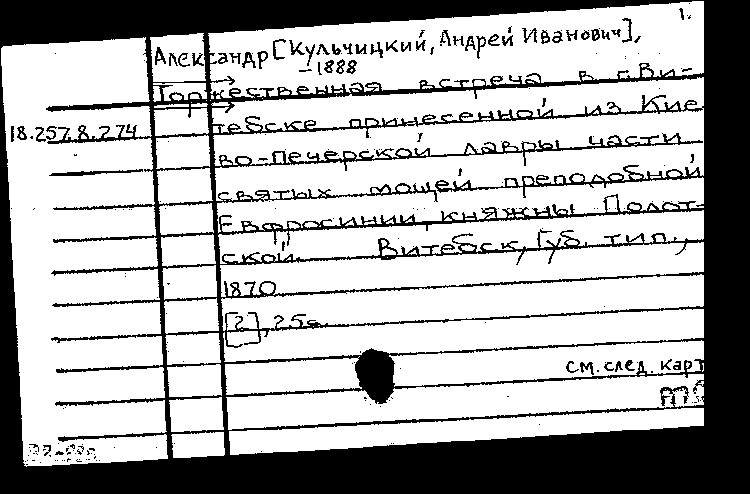 1.
Александр [Кульчицкий, Андрей Иванович],
–1888
Торжественная встреча в г. Ви-
18.257.8.274 тебске принесенной из Кие
во-Печерской лавры части
святых мощей преподобной
Евфросинии, княжны Полот-
ской. Витебск, Губ. тип.,
1870
[2], 25с.
см. след. карт